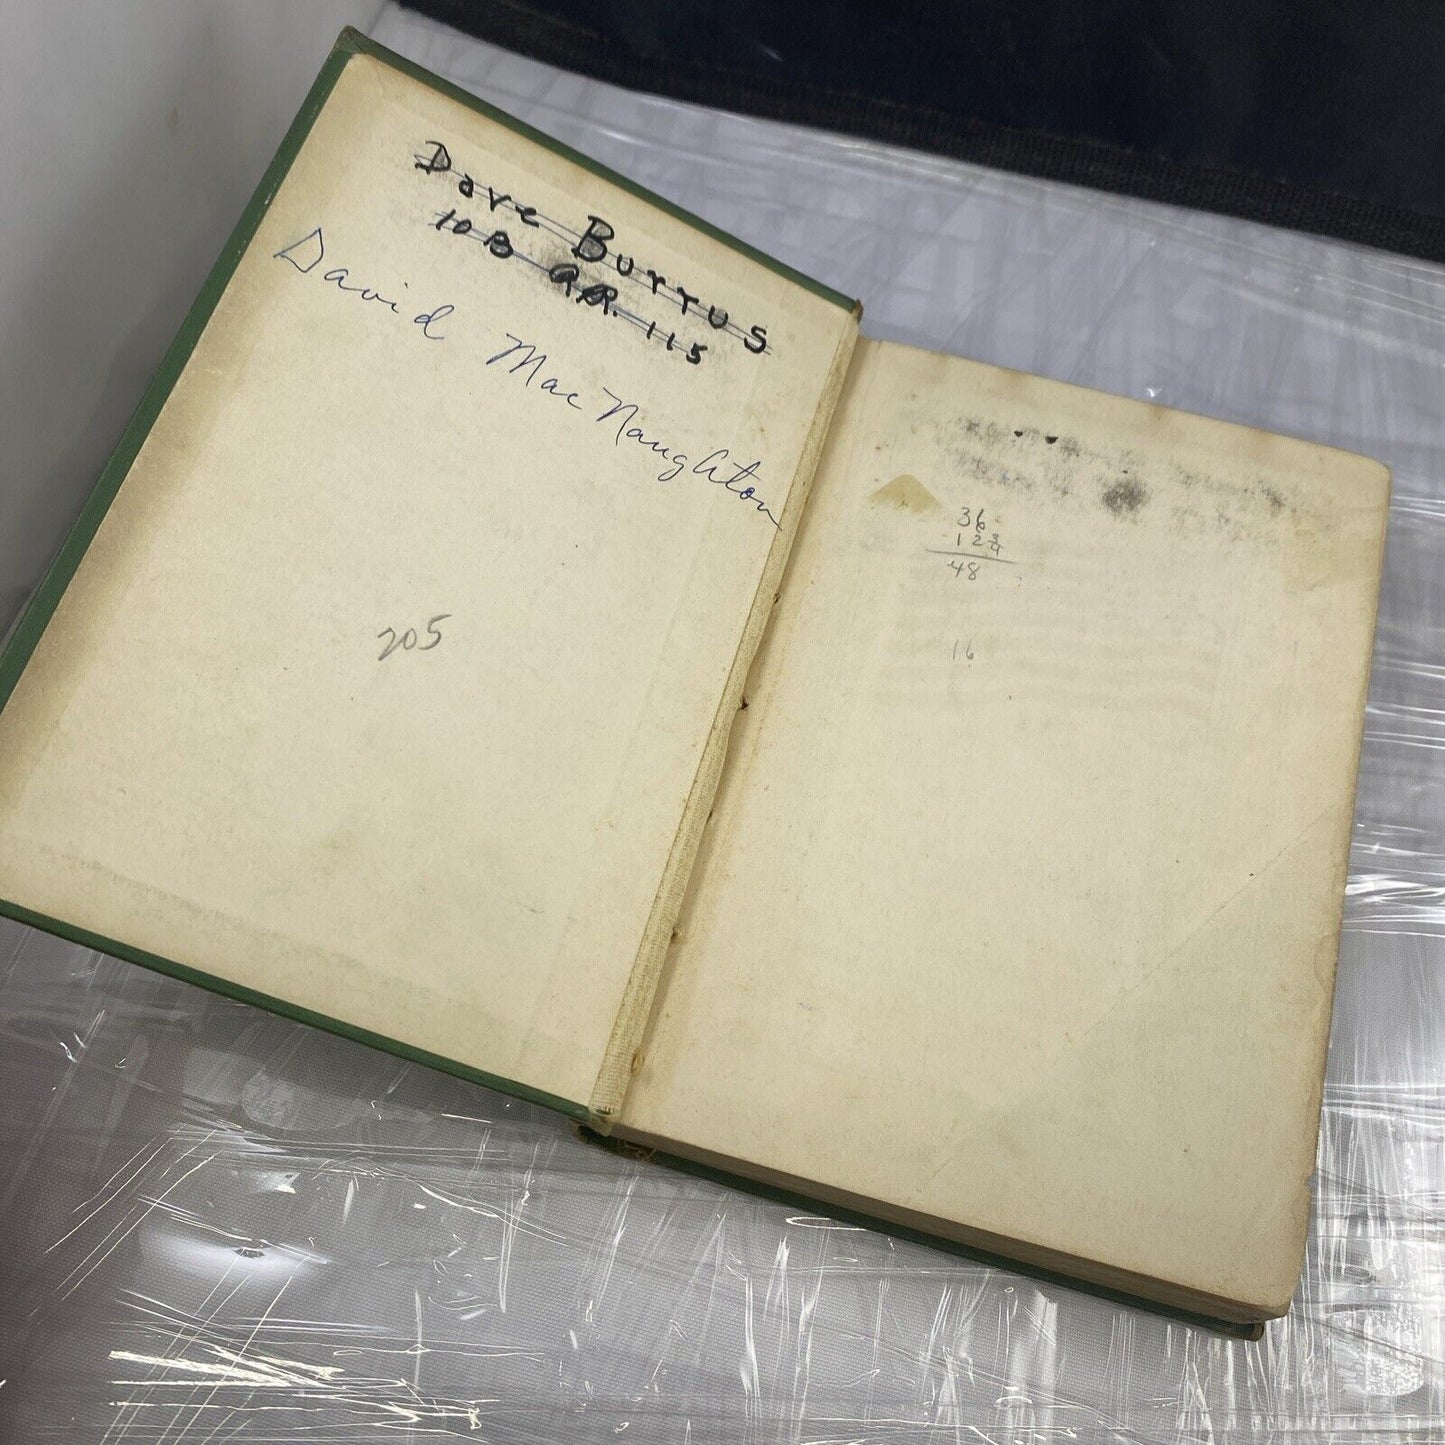 Dave Buttus
10B RR. 115
David MacNaughton
205
36
12 3/4
48
16